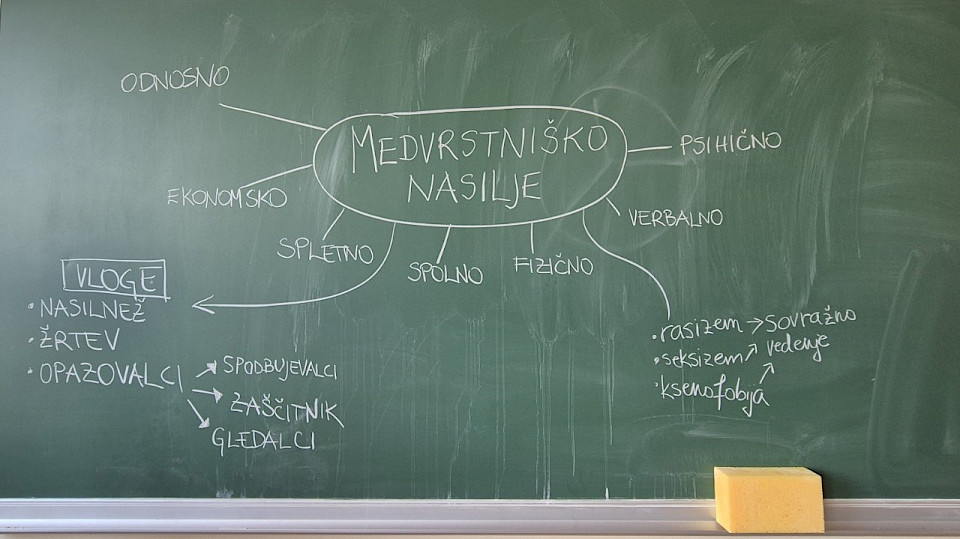 ODNOSNO
MEDVRSTNIŠKO
NASILJE
PSIHIČNO
EKONOMSKO
VERBALNO
SPLETNO
SPOLNO
FIZIČNO
VLOGE
• NASILNEŽ
• ŽRTEV
• OPAZOVALCI
→ SPODBUJEVALCI
→ ZAŠČITNIK
→ GLEDALCI
• rasizem → sovražno
vedenje
• seksizem
• ksenofobija